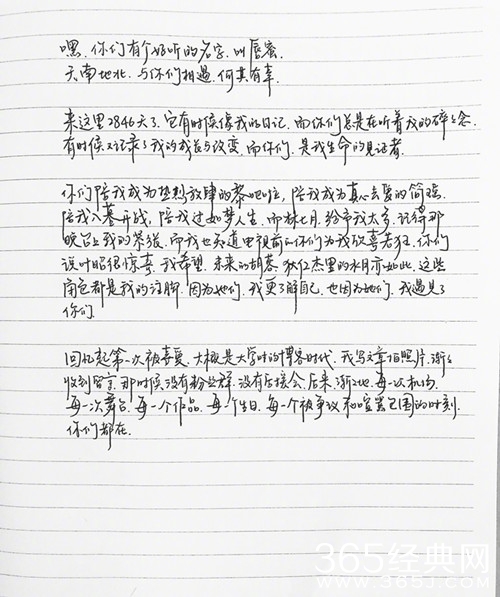 嘿，你们有个好听的名字，叫唇蜜。
天南地北，与你们相遇，何其有幸。
来这里2846天了，它有时候像我的日记，而你们总是在听着我的碎碎念。
有时候又记录了我的成长与改变，而你们，是我生命的见证者。
你们陪我成为热烈放肆的黎吧啦，陪我成为真心去爱的简瑶，
陪我八暮开战，陪我过如梦人生，而林七月，给予我太多，记得那
晚台上我的紧张，而我也知道电视前的你们为我欣喜若狂，你们
说叶昭很惊喜，我希望，未来的胡蓉，狄仁杰里的水月亦如此，这些
角色都是我的注脚，因为她们，我更了解自己，也因为她们，我遇见了
你们。
回忆起第一次被喜爱，大概是大学时的博客时代，我写文章拍照片，渐渐
收到留言，那时候，没有粉丝群，没有后援会，后来，渐渐地，每一次机场，
每一次舞台，每一个作品，每一个生日，每一个被争议和喧嚣包围的时刻，
你们都在。
365经典网
WWW.365J.COM